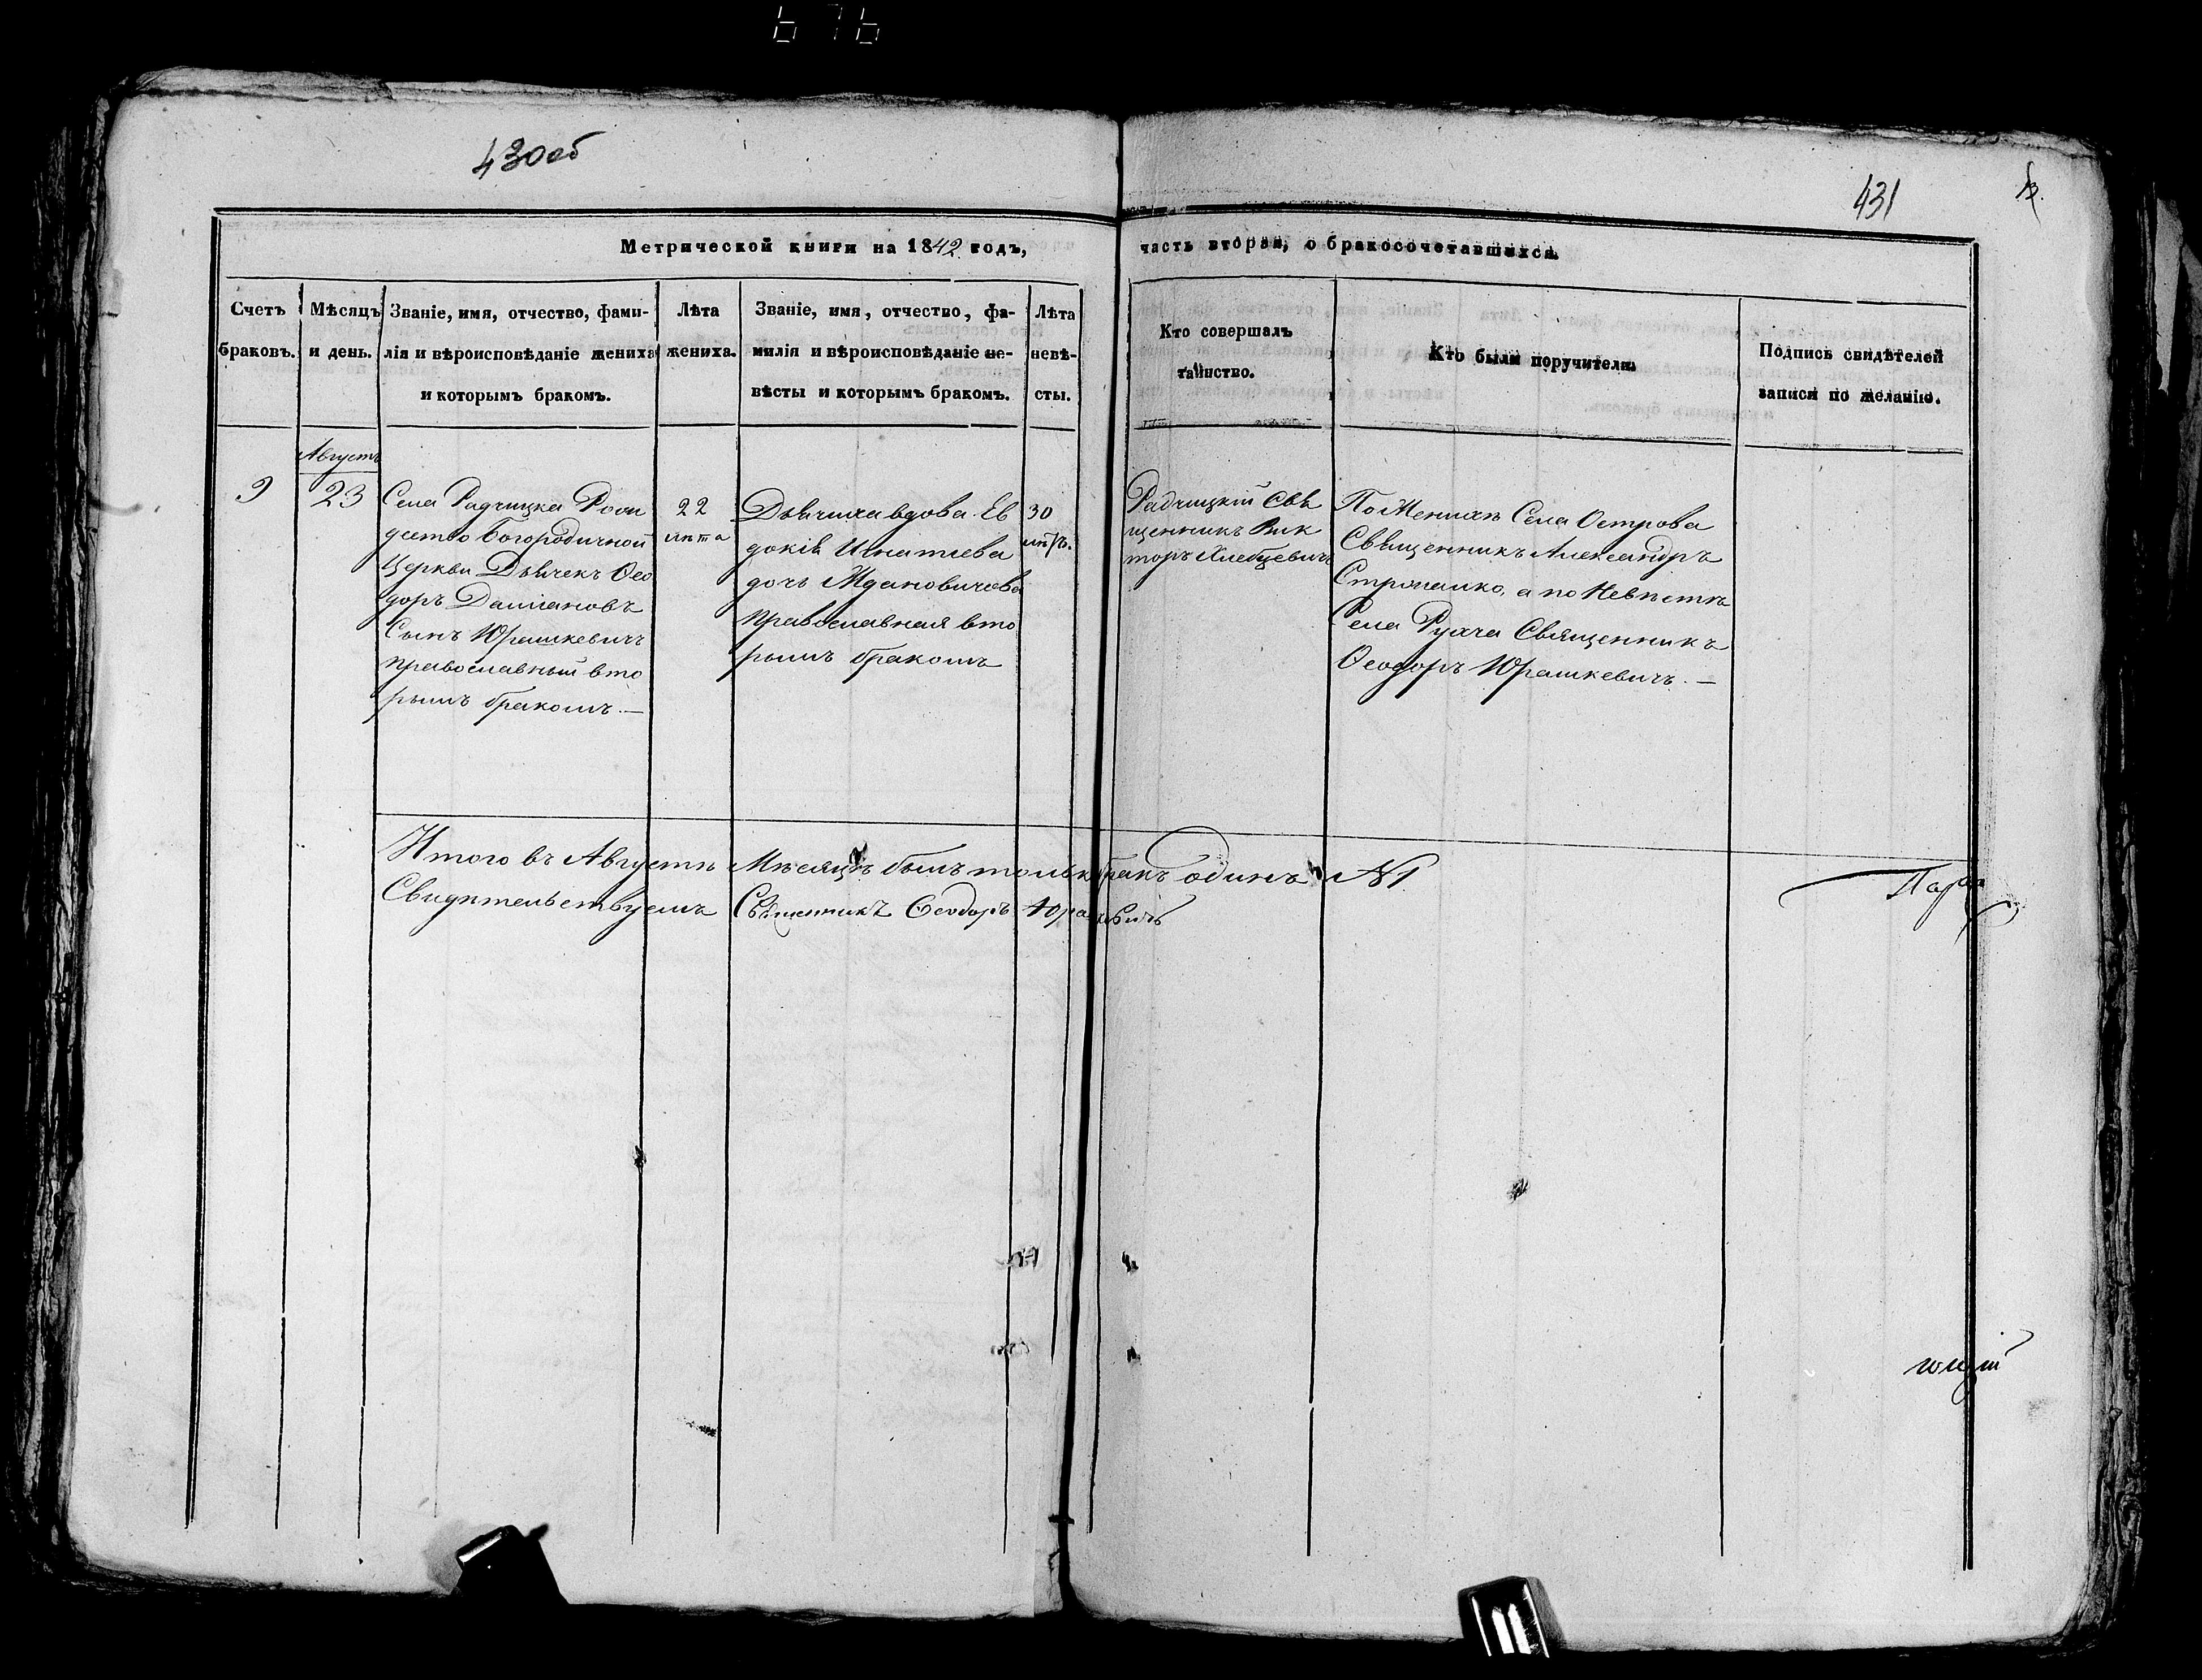 676
430об
431
Метрической книги на 1842 годъ,
часть вторая, о бракосочетавшихся.
Счетъ браковъ.
Мѣсяцъ и день.
Званіе, имя, отчество, фами-
лія и вѣроисповѣданіе жениха
и которымъ бракомъ.
Лѣта
жениха.
Званіе, имя, отчество, фа-
милія и вѣроисповѣданіе не-
вѣсты и которымъ бракомъ.
Лѣта
невѣ-
сты.
Кто совершалъ
таинство.
Кто были поручители.
Подпись свидѣтелей
записи по желанію.
Августъ
9
23
Села Радчицка Рожи
дество Богородичной
Церкви Дьячекъ Ѳео
доръ Даміановъ
Сынъ Юрашкевичъ
православный вто
рымъ бракомъ. —
22
лѣта
Дьячиха вдова Ев
докія Игнатіева
дочь Ждановичова
православная вто
рымъ бракомъ
30
лѣтъ.
Радчицкій Свя
щенникъ Вик
торъ Хлебцевичъ
По Женихѣ Села Острова
Священникъ Александръ
а по Невѣстѣ
Села Рухча Священникъ
Ѳеодоръ Юрашкевичъ. —
Итого въ Августѣ Мѣсяцѣ былъ только бракъ одинъ №1
Свидѣтельствуемъ Священникъ Ѳеодоръ Юрашкевичъ